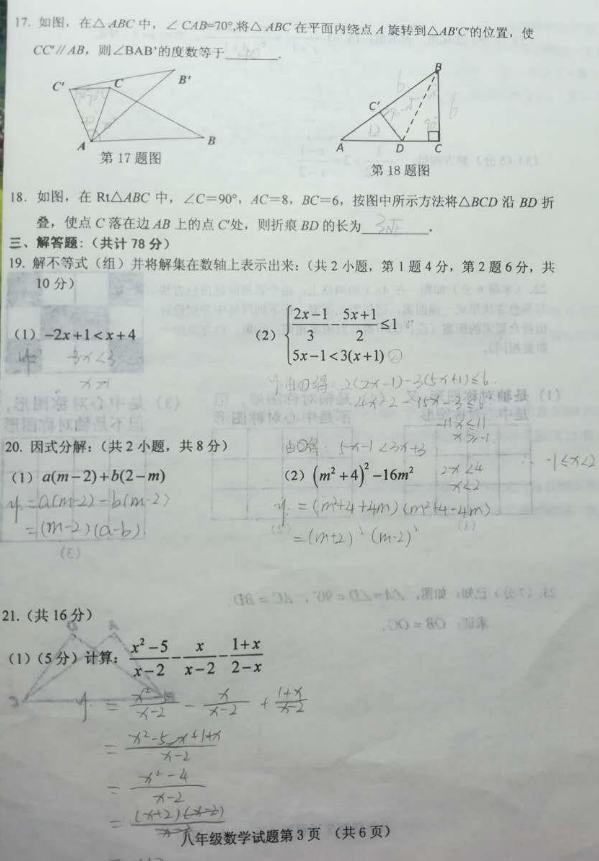 17. 如图，在△ABC 中，∠CAB=70°,将△ABC 在平面内绕点 A 旋转到△AB'C'的位置，使
CC'// AB，则∠BAB'的度数等于 40° .
C' C B'
A B
第 17 题图
B
C'
6
A D C
第 18 题图
18. 如图，在 Rt△ABC 中，∠C=90°，AC=8，BC=6，按图中所示方法将△BCD 沿 BD 折
叠，使点 C 落在边 AB 上的点 C'处，则折痕 BD 的长为 3√5 .
三、解答题:（共计 78 分）
19. 解不等式（组）并将解集在数轴上表示出来:（共 2 小题，第 1 题 4 分，第 2 题 6 分，共
10 分）
（1）-2x+1<x+4
-3x<3
x>-1
（2）{ (2x-1)/3 - (5x+1)/2 ≤1 ①
5x-1<3(x+1) ②
由①得: 2(2x-1)-3(5x+1)≤6
4x-2-15x-3≤6
-11x≤11
x≥-1
由②得: 5x-1<3x+3
2x<4
x<2
∴ -1≤x<2
20. 因式分解:（共 2 小题，共 8 分）
（1）a(m-2)+b(2-m)
=a(m-2)-b(m-2)
=(m-2)(a-b).
（2）(m²+4)²-16m²
=(m²+4+4m)(m²+4-4m)
=(m+2)²(m-2)²
21.（共 16 分）
（1）(5 分）计算: (x²-5)/(x-2) - x/(x-2) - (1+x)/(2-x)
- x/(x-2) + (1+x)/(x-2)
= (x²-5-x+1+x)/(x-2)
= (x²-4)/(x-2)
= (x+2)(x-2)
八年级数学试题第 3 页 （共 6 页）